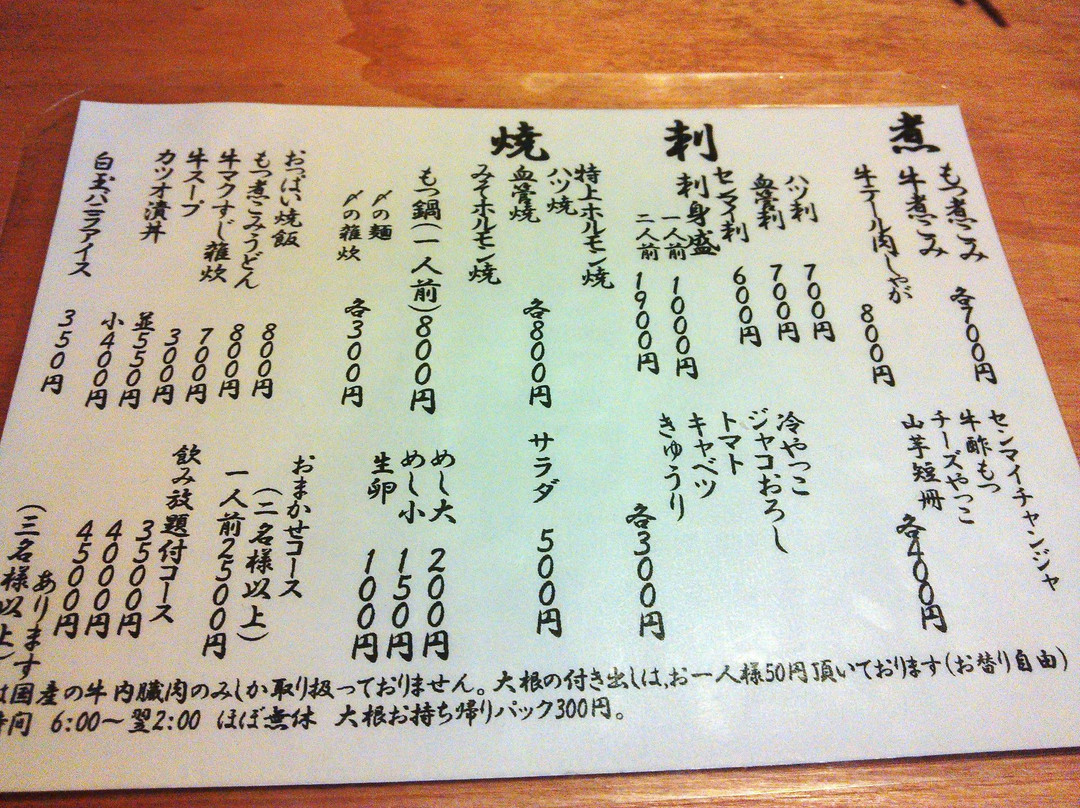 煮
もつ煮こみ
牛煮こみ
各700円
牛テール肉じゃが
800円
刺
ハツ刺
700円
血管刺
700円
センマイ刺
600円
刺身盛
一人前
1000円
二人前
1900円
焼
特上ホルモン焼
ハツ焼
血管焼
みそホルモン焼
各800円
もつ鍋(一人前)800円
〆の麺
〆の雑炊
各300円
おっぱい焼飯
800円
もつ煮こみうどん
800円
牛マクすじ雑炊
700円
牛スープ
300円
カツオ漬丼
並550円
小400円
白玉バニラアイス
350円
センマイチャンジャ
牛酢もつ
チーズやっこ
山芋短冊
各400円
冷やっこ
ジャコおろし
トマト
キャベツ
きゅうり
各300円
サラダ
500円
めし大
200円
めし小
150円
生卵
100円
おまかせコース
(二名様以上)
一人前2500円
飲み放題付コース
3500円
4000円
4500円
あります
(三名様以上)
は国産の牛内臓肉のみしか取り扱っておりません。大根の付き出しは、お一人様50円頂いております(お替り自由)
時間 6:00〜翌2:00 ほぼ無休 大根お持ち帰りパック300円。